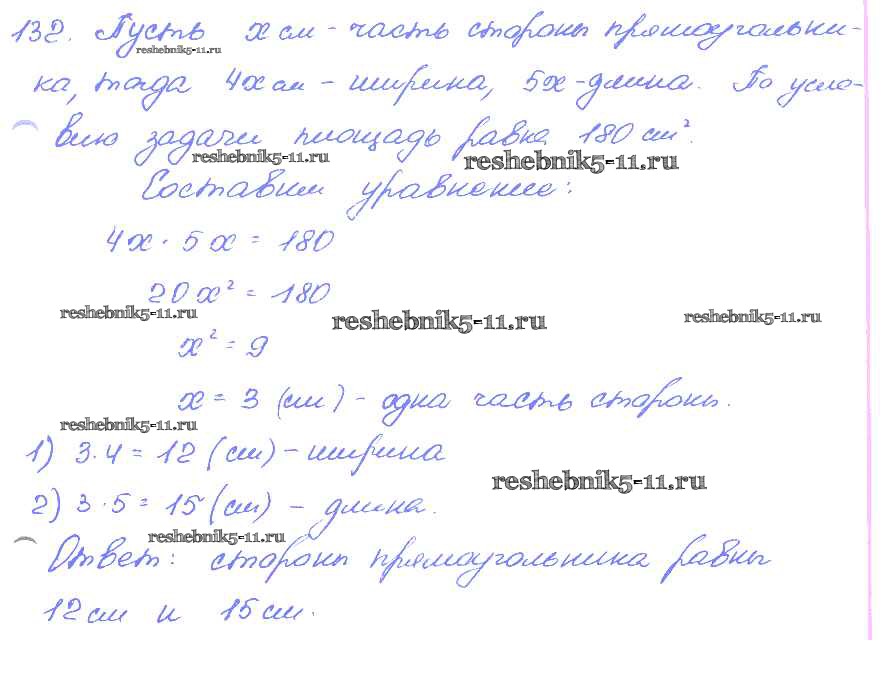 132. Пусть x см - часть стороны прямоугольни-
reshebnik5-11.ru
ка, тогда 4x см - ширина, 5x - длина. По усло-
вию задачи площадь равна 180 см².
reshebnik5-11.ru reshebnik5-11.ru
Составим уравнение:
4x · 5x = 180
20x² = 180
reshebnik5-11.ru reshebnik5-11.ru reshebnik5-11.ru
x² = 9
x = 3 (см) - одна часть стороны.
reshebnik5-11.ru
1) 3·4 = 12 (см) - ширина
reshebnik5-11.ru
2) 3·5 = 15 (см) - длина.
reshebnik5-11.ru
Ответ: стороны прямоугольника равны
12 см и 15 см.